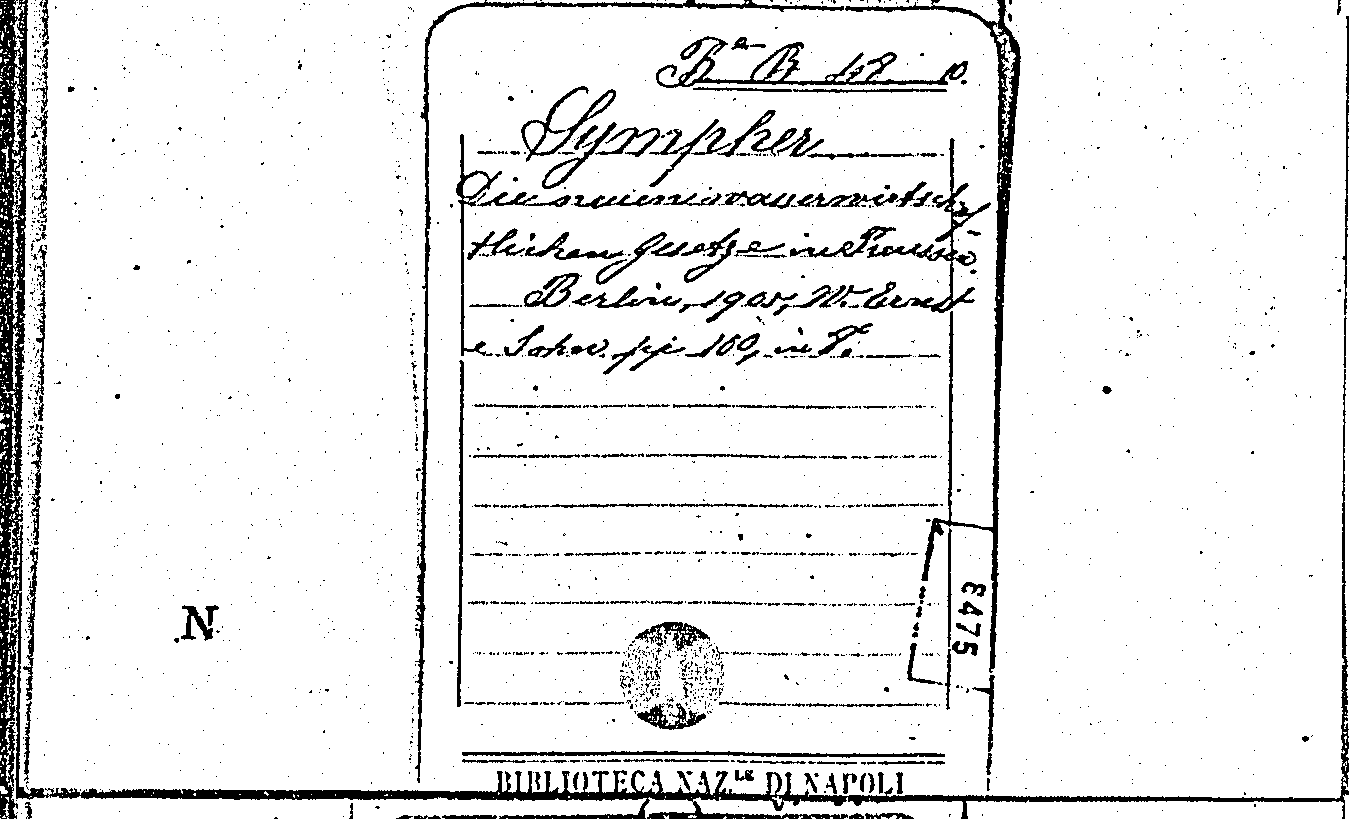 Bª B 48 10.
Sympher
Die neuen wasserwirtschaf-
tlichen Gesetze in Preussen.
Berlin, 1905, W. Ernst
e Sohn pp 100, in F.
E475
N
BIBLIOTECA NAZ.LE DI NAPOLI